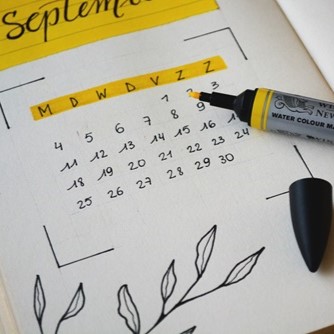 Septem
M D W D V Z Z
1 2 3
4 5 6 7 8 9
11 12 13 14 15 16
18 19 20 21 22 23 24
25 26 27 28 29 30
WATER COLOUR M